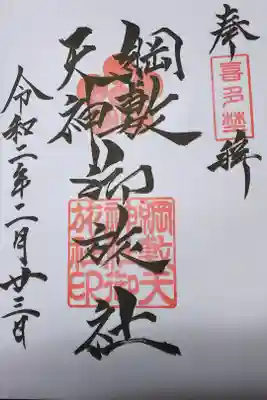 奉拝
喜多埜
綱敷
天神
御旅社
綱敷天
神御
旅社印
令和二年二月廿三日